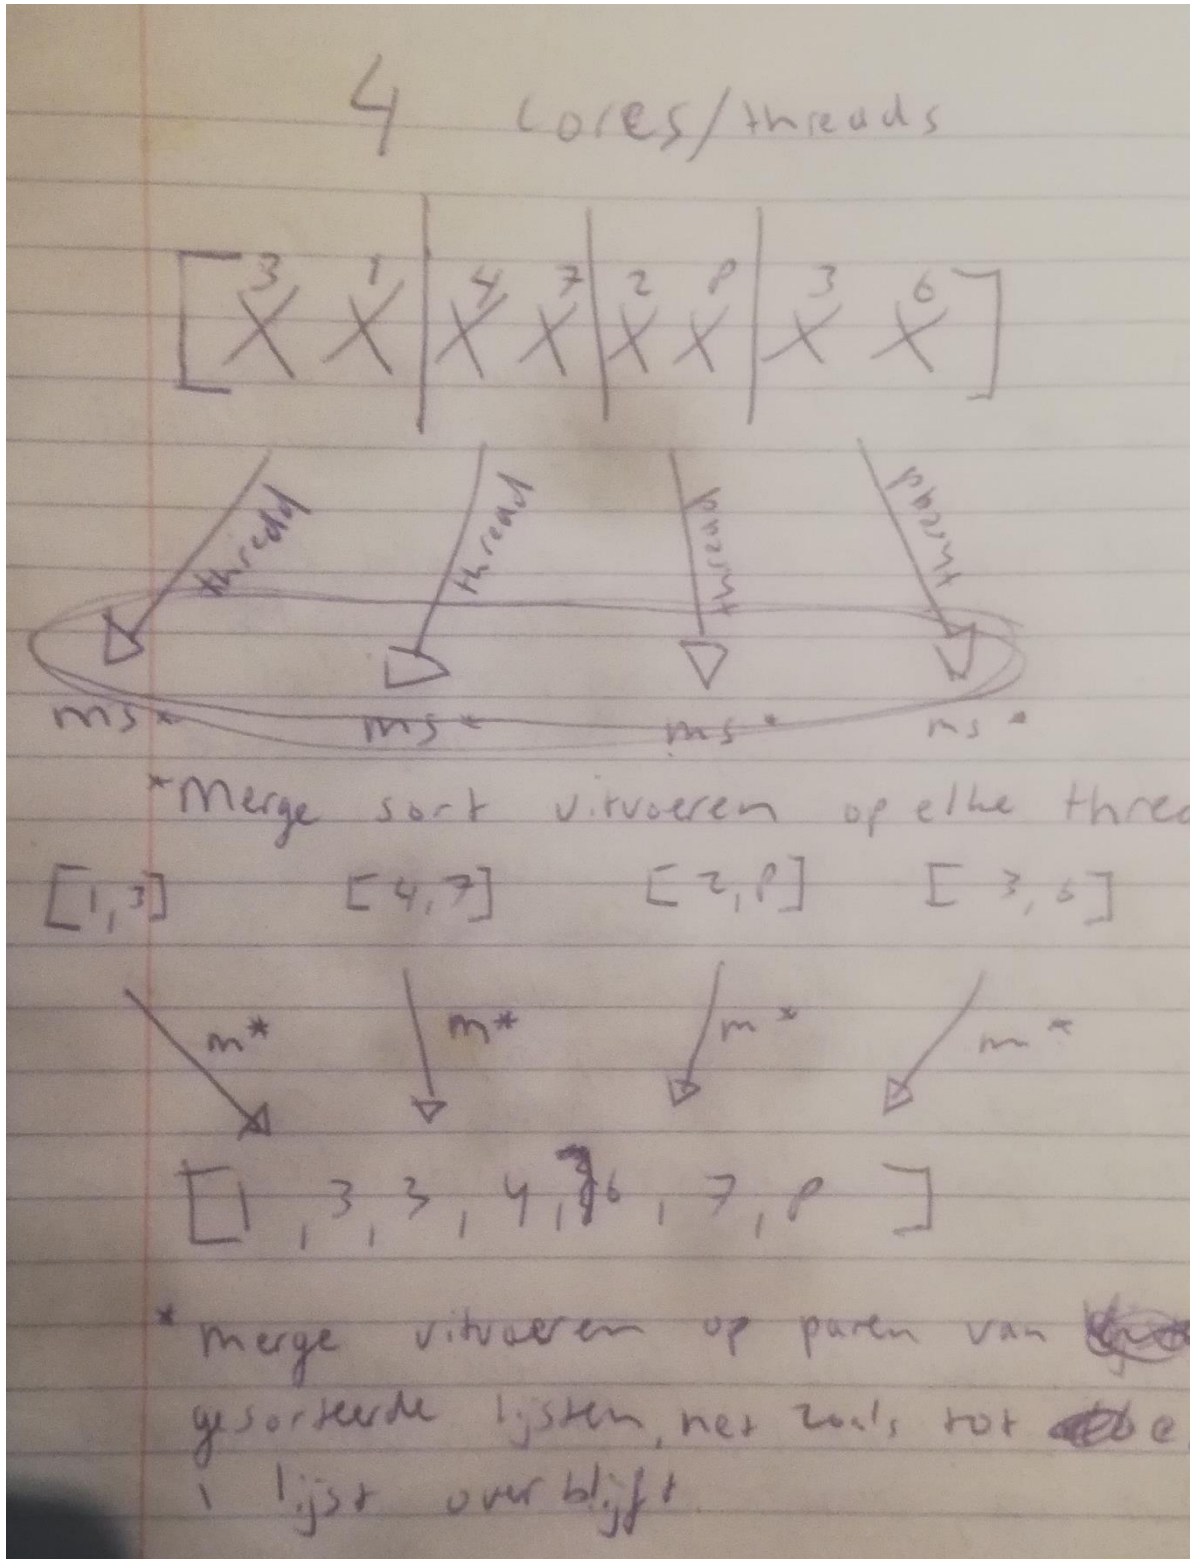 4 cores/threads
[ 3 1 | 4 7 | 2 8 | 3 6 ]
X X X X X X X X
thread thread thread thread
ms* ms* ms* ms*
*Merge sort uitvoeren op elke threa
[1,3] [4,7] [2,8] [3,6]
m* m* m* m*
[1, 3, 3, 4, 6, 7, 8 ]
* merge uitvoeren op paren van
gesorteerde lijsten, net zoals tot er
1 lijst over blijft.